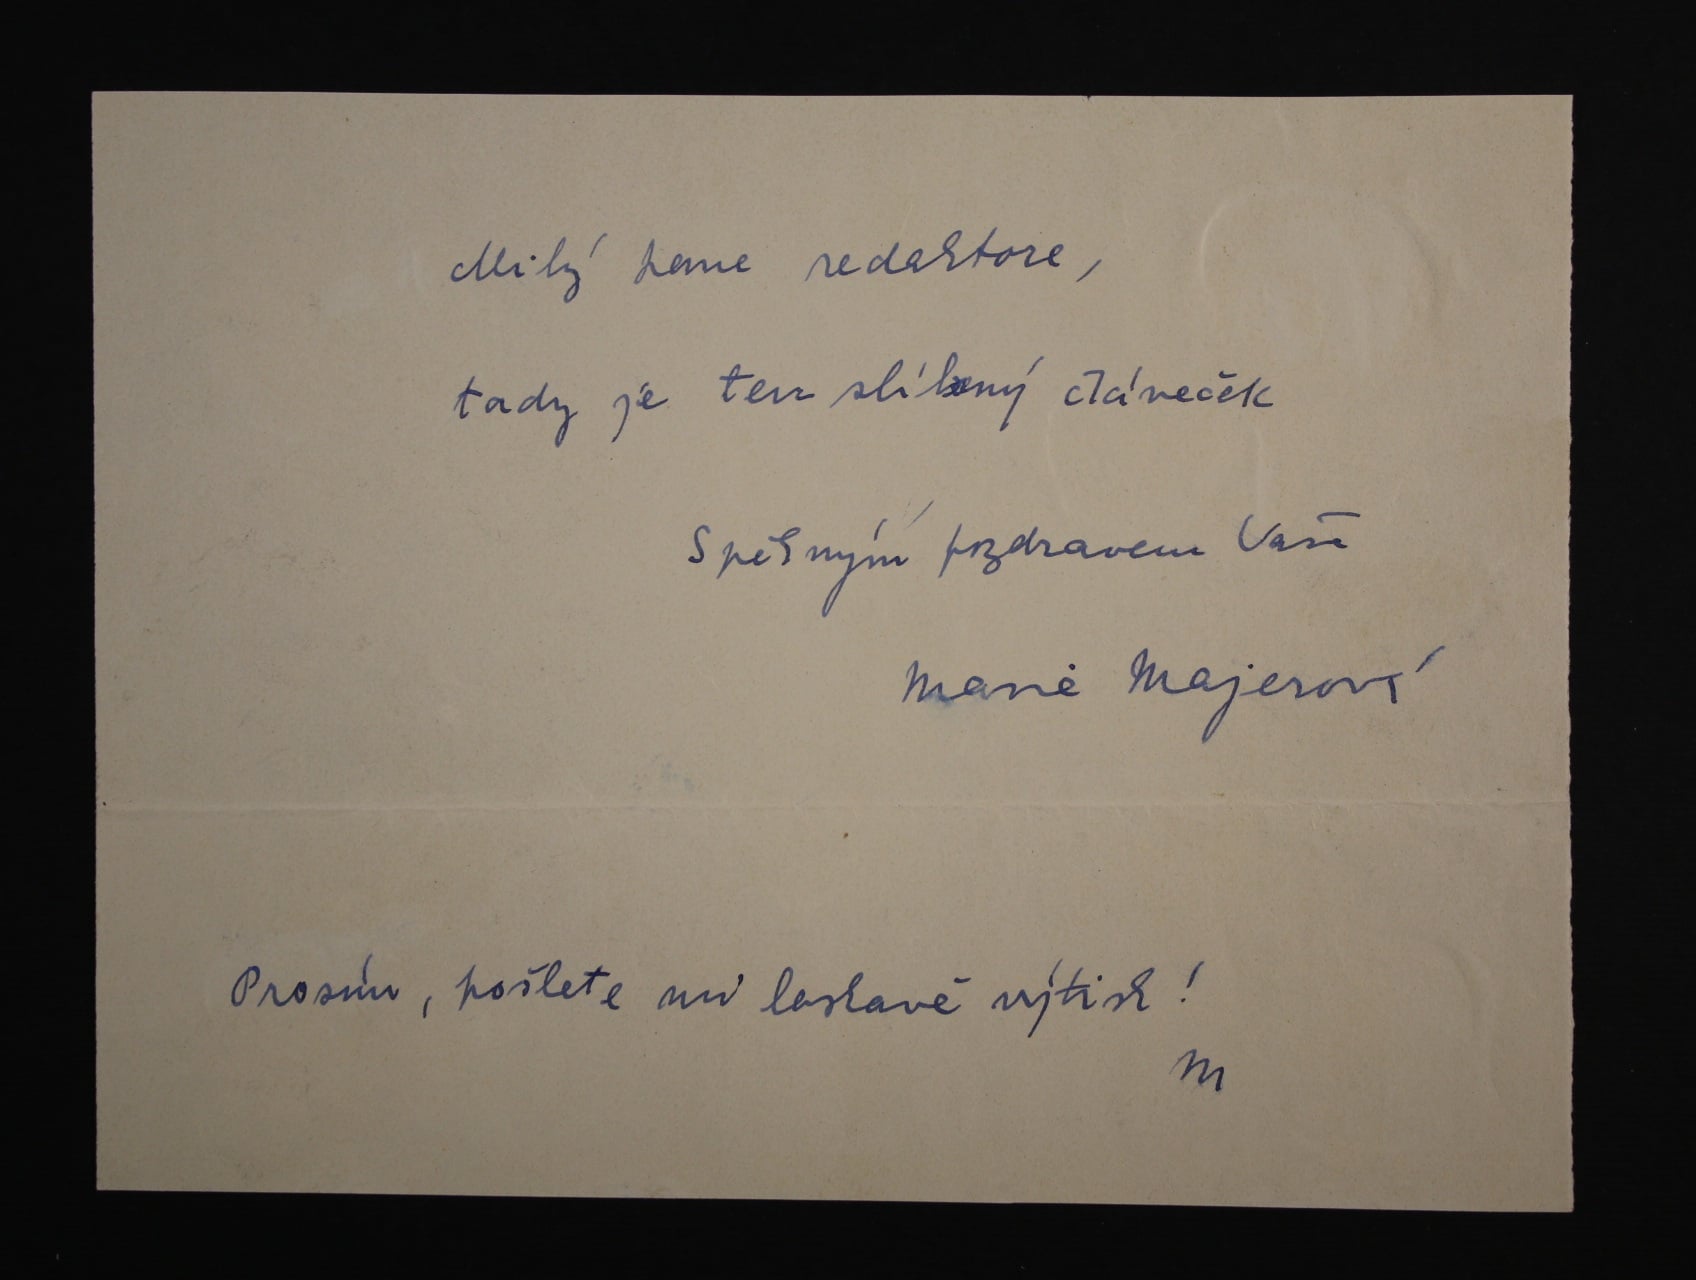 Milý pane redaktore,
tady je ten slíbený článeček
S pěkným pozdravem Vaše
Marie Majerová
Prosím, pošlete mi laskavě výtisk!
M